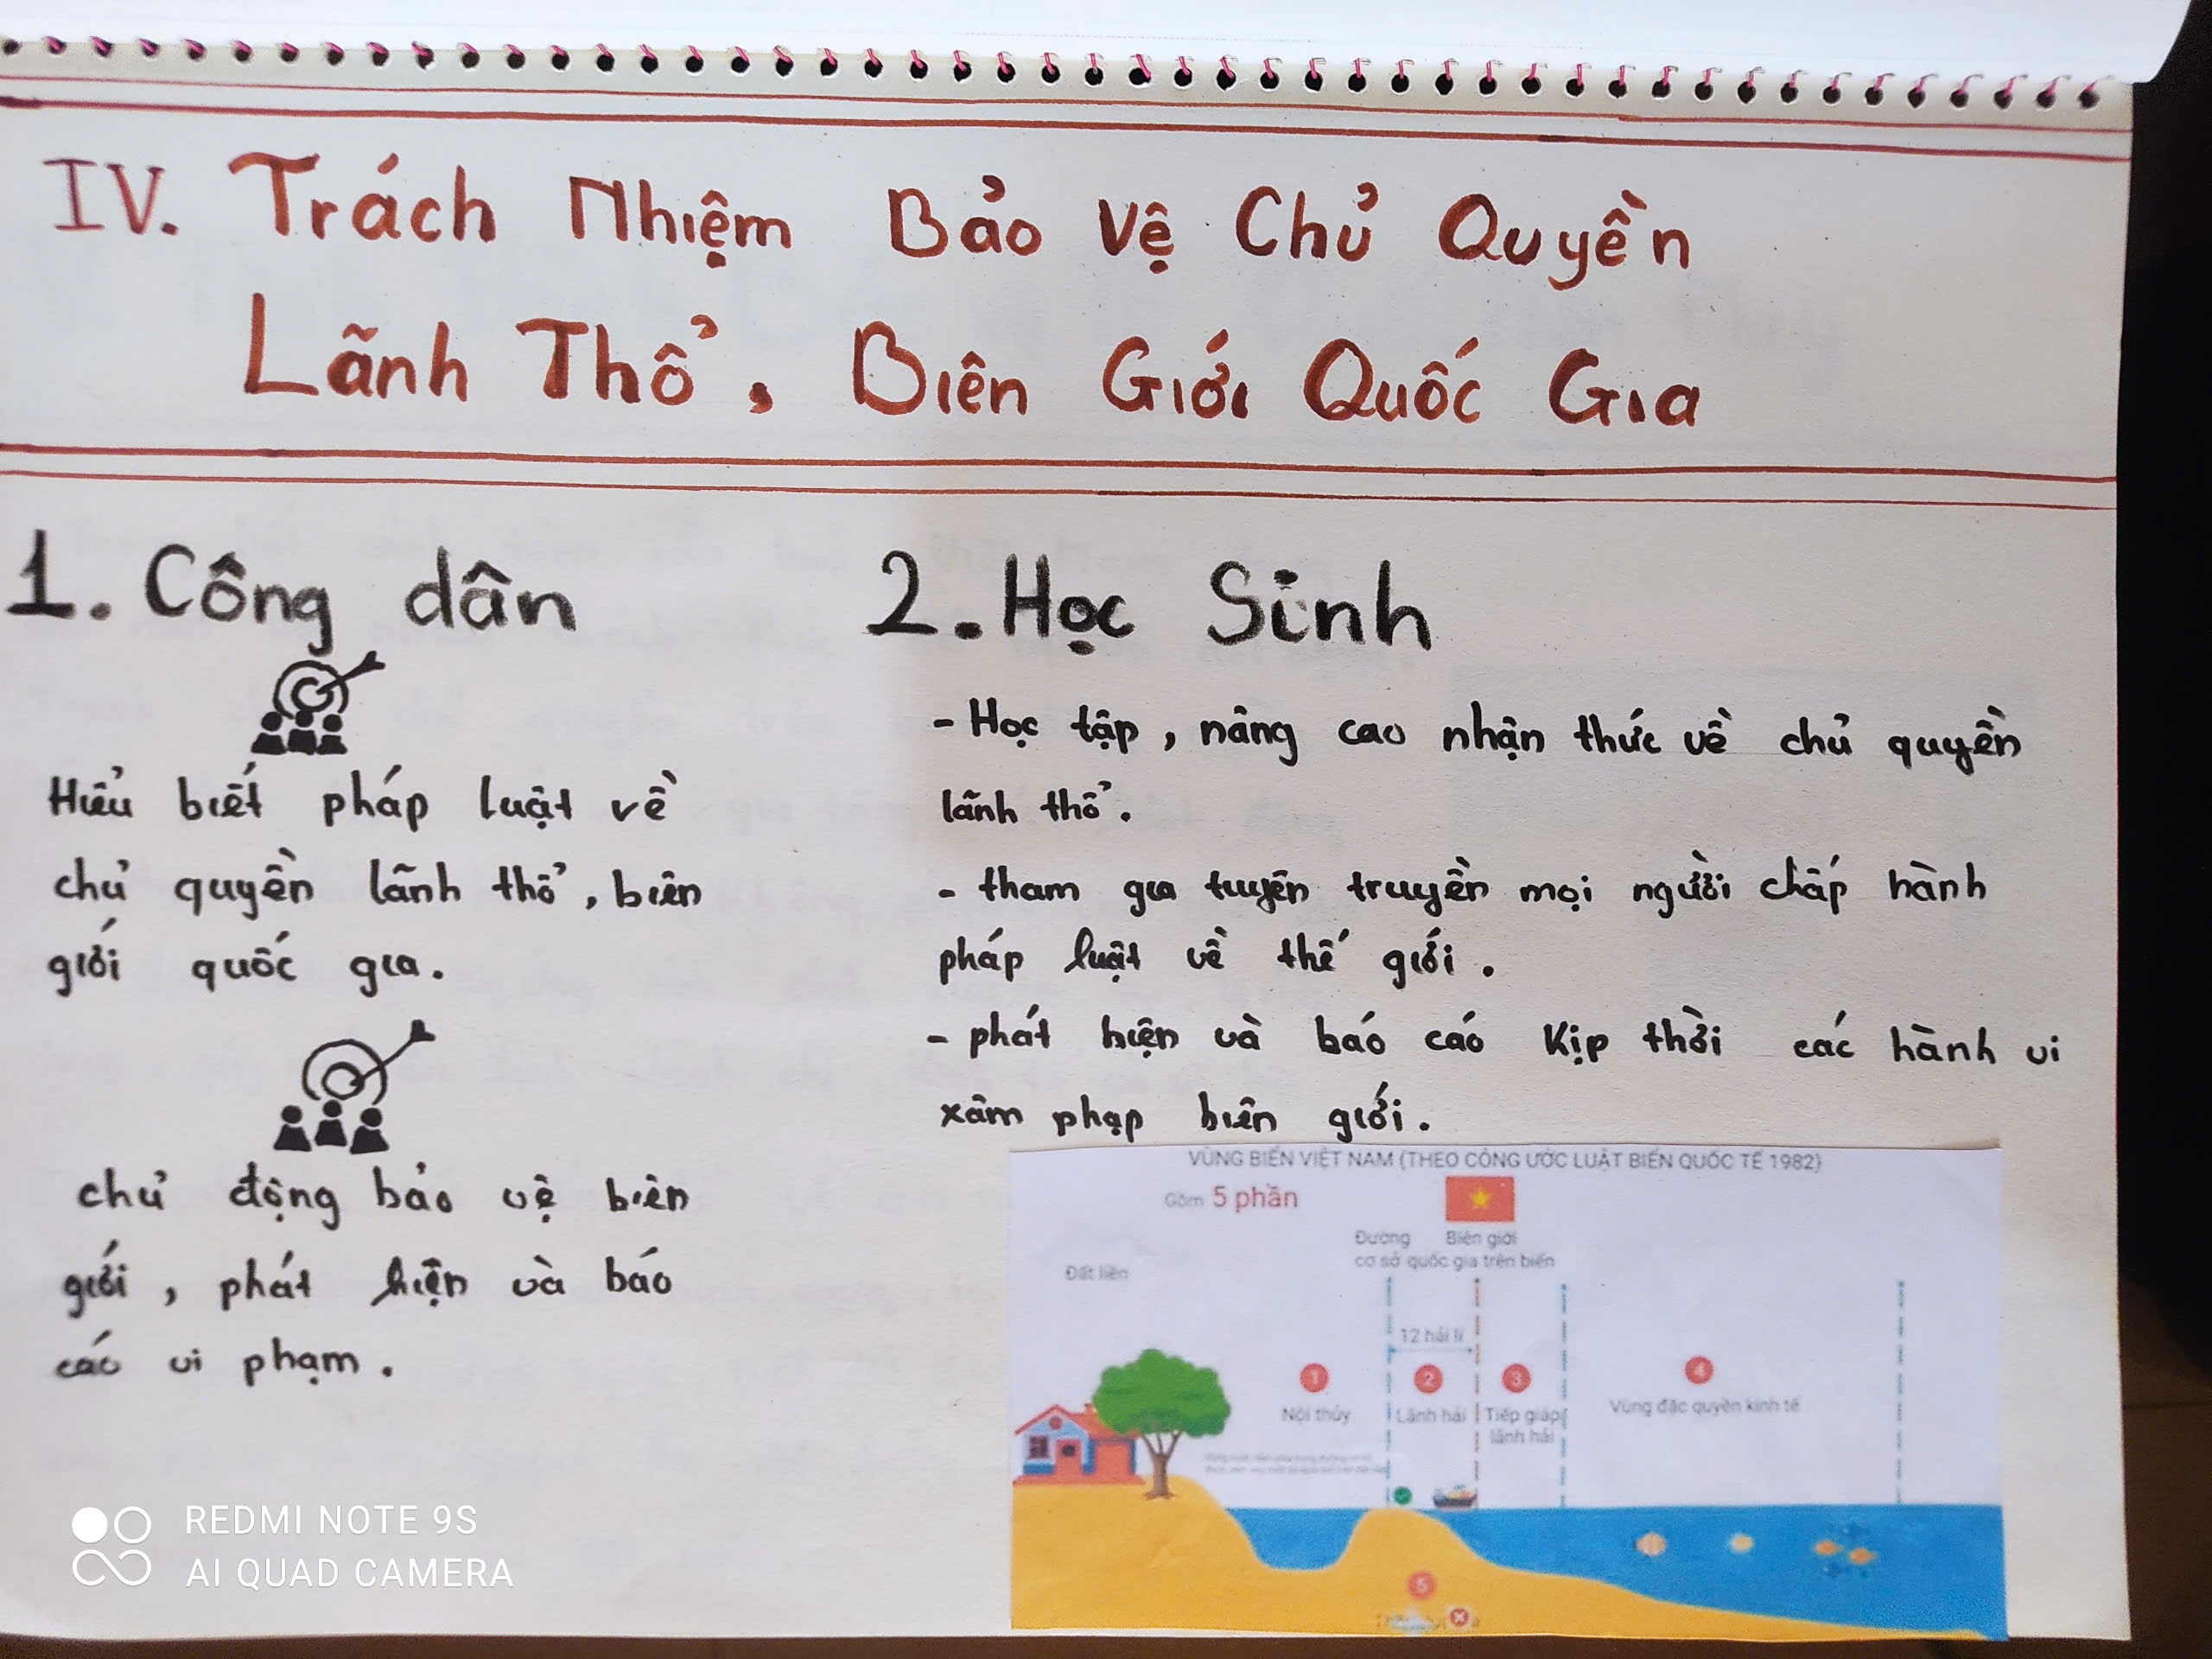 IV. Trách Nhiệm Bảo Vệ Chủ Quyền
Lãnh Thổ, Biên Giới Quốc Gia
1. Công dân
Hiểu biết pháp luật về
chủ quyền lãnh thổ, biên
giới quốc gia.
chủ động bảo vệ biên
giới, phát hiện và báo
cáo vi phạm.
2. Học Sinh
- Học tập, nâng cao nhận thức về chủ quyền
lãnh thổ.
- tham gia tuyên truyền mọi người chấp hành
pháp luật về thế giới.
- phát hiện và báo cáo kịp thời các hành vi
xâm phạp biên giới.
VÙNG BIỂN VIỆT NAM (THEO CÔNG ƯỚC LUẬT BIỂN QUỐC TẾ 1982)
Gồm 5 phần
Đường Biên giới
cơ sở quốc gia trên biển
Đất liền
12 hải lí
1 2 3 4
Nội thủy Lãnh hải Tiếp giáp Vùng đặc quyền kinh tế
lãnh hải
5
REDMI NOTE 9S
AI QUAD CAMERA